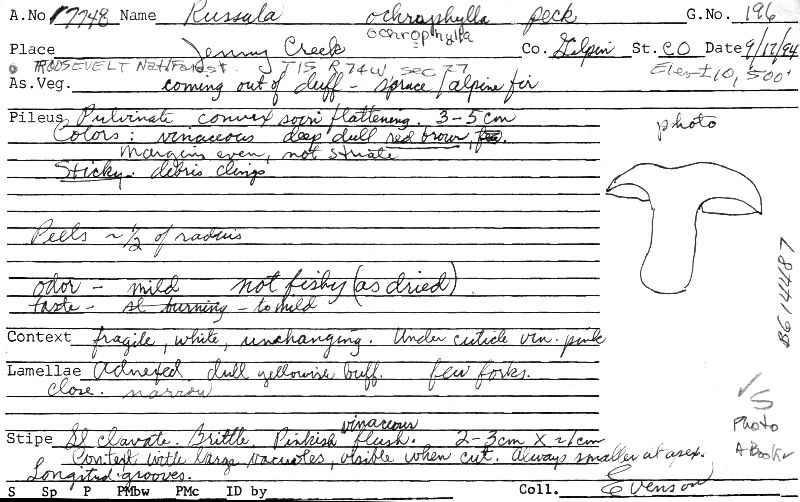 A.No 17748 Name Russula ochrophylla Peck G.No. 196
ochrophylla
Place Jenny Creek Co. Gilpin St. CO Date 9/17/94
ROOSEVELT Natl Forest. T1S R74W sec 27 Elev ± 10,500'
As.Veg. coming out of duff - spruce / alpine fir
Pileus Pulvinate convex soon flattening. 3-5 cm
Colors: vinaceous deep dull red brown,
margins even, not striate
Sticky. debris clings
Peels ~ 1/2 of radius
odor - mild not fishy (as dried)
taste - sl burning - to mild
Context fragile, white, unchanging. Under cuticle vin. pink
Lamellae Adnexed. dull yellowish buff. few forks.
close. narrow
vinaceous
Stipe Sl clavate. Brittle. Pinkish flush. 2-3cm x ~1cm
Context with large vacuoles, visible when cut. Always smaller at apex.
Longitud. grooves.
S Sp P PMbw PMc ID by Coll. Evenson
photo
B614487
✓S
Photo
A Book